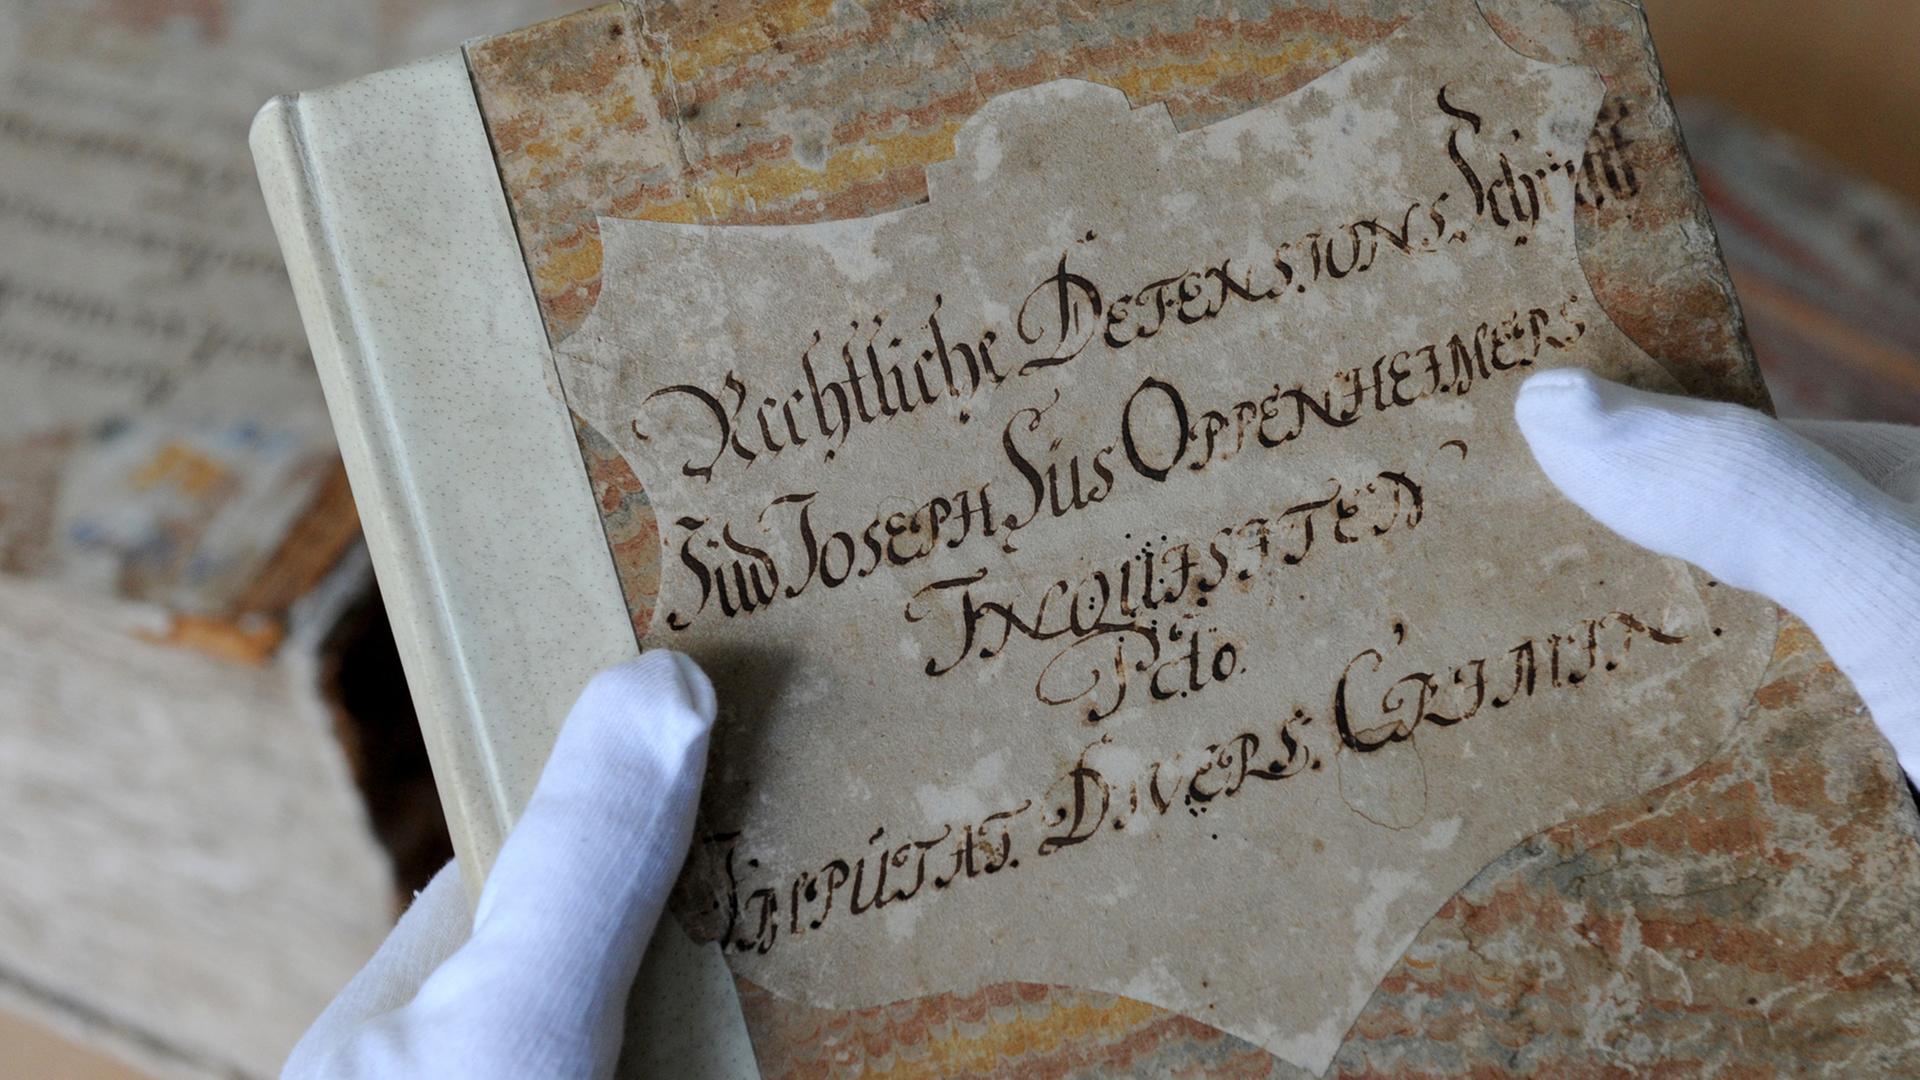 Rechtliche DEFENSIONS Schrifft
Jud JOSEPH Süs OPPENHEIMERS
INQUISITEN
Pcto.
IMPUTAT. DIVERS. CRIMIN.